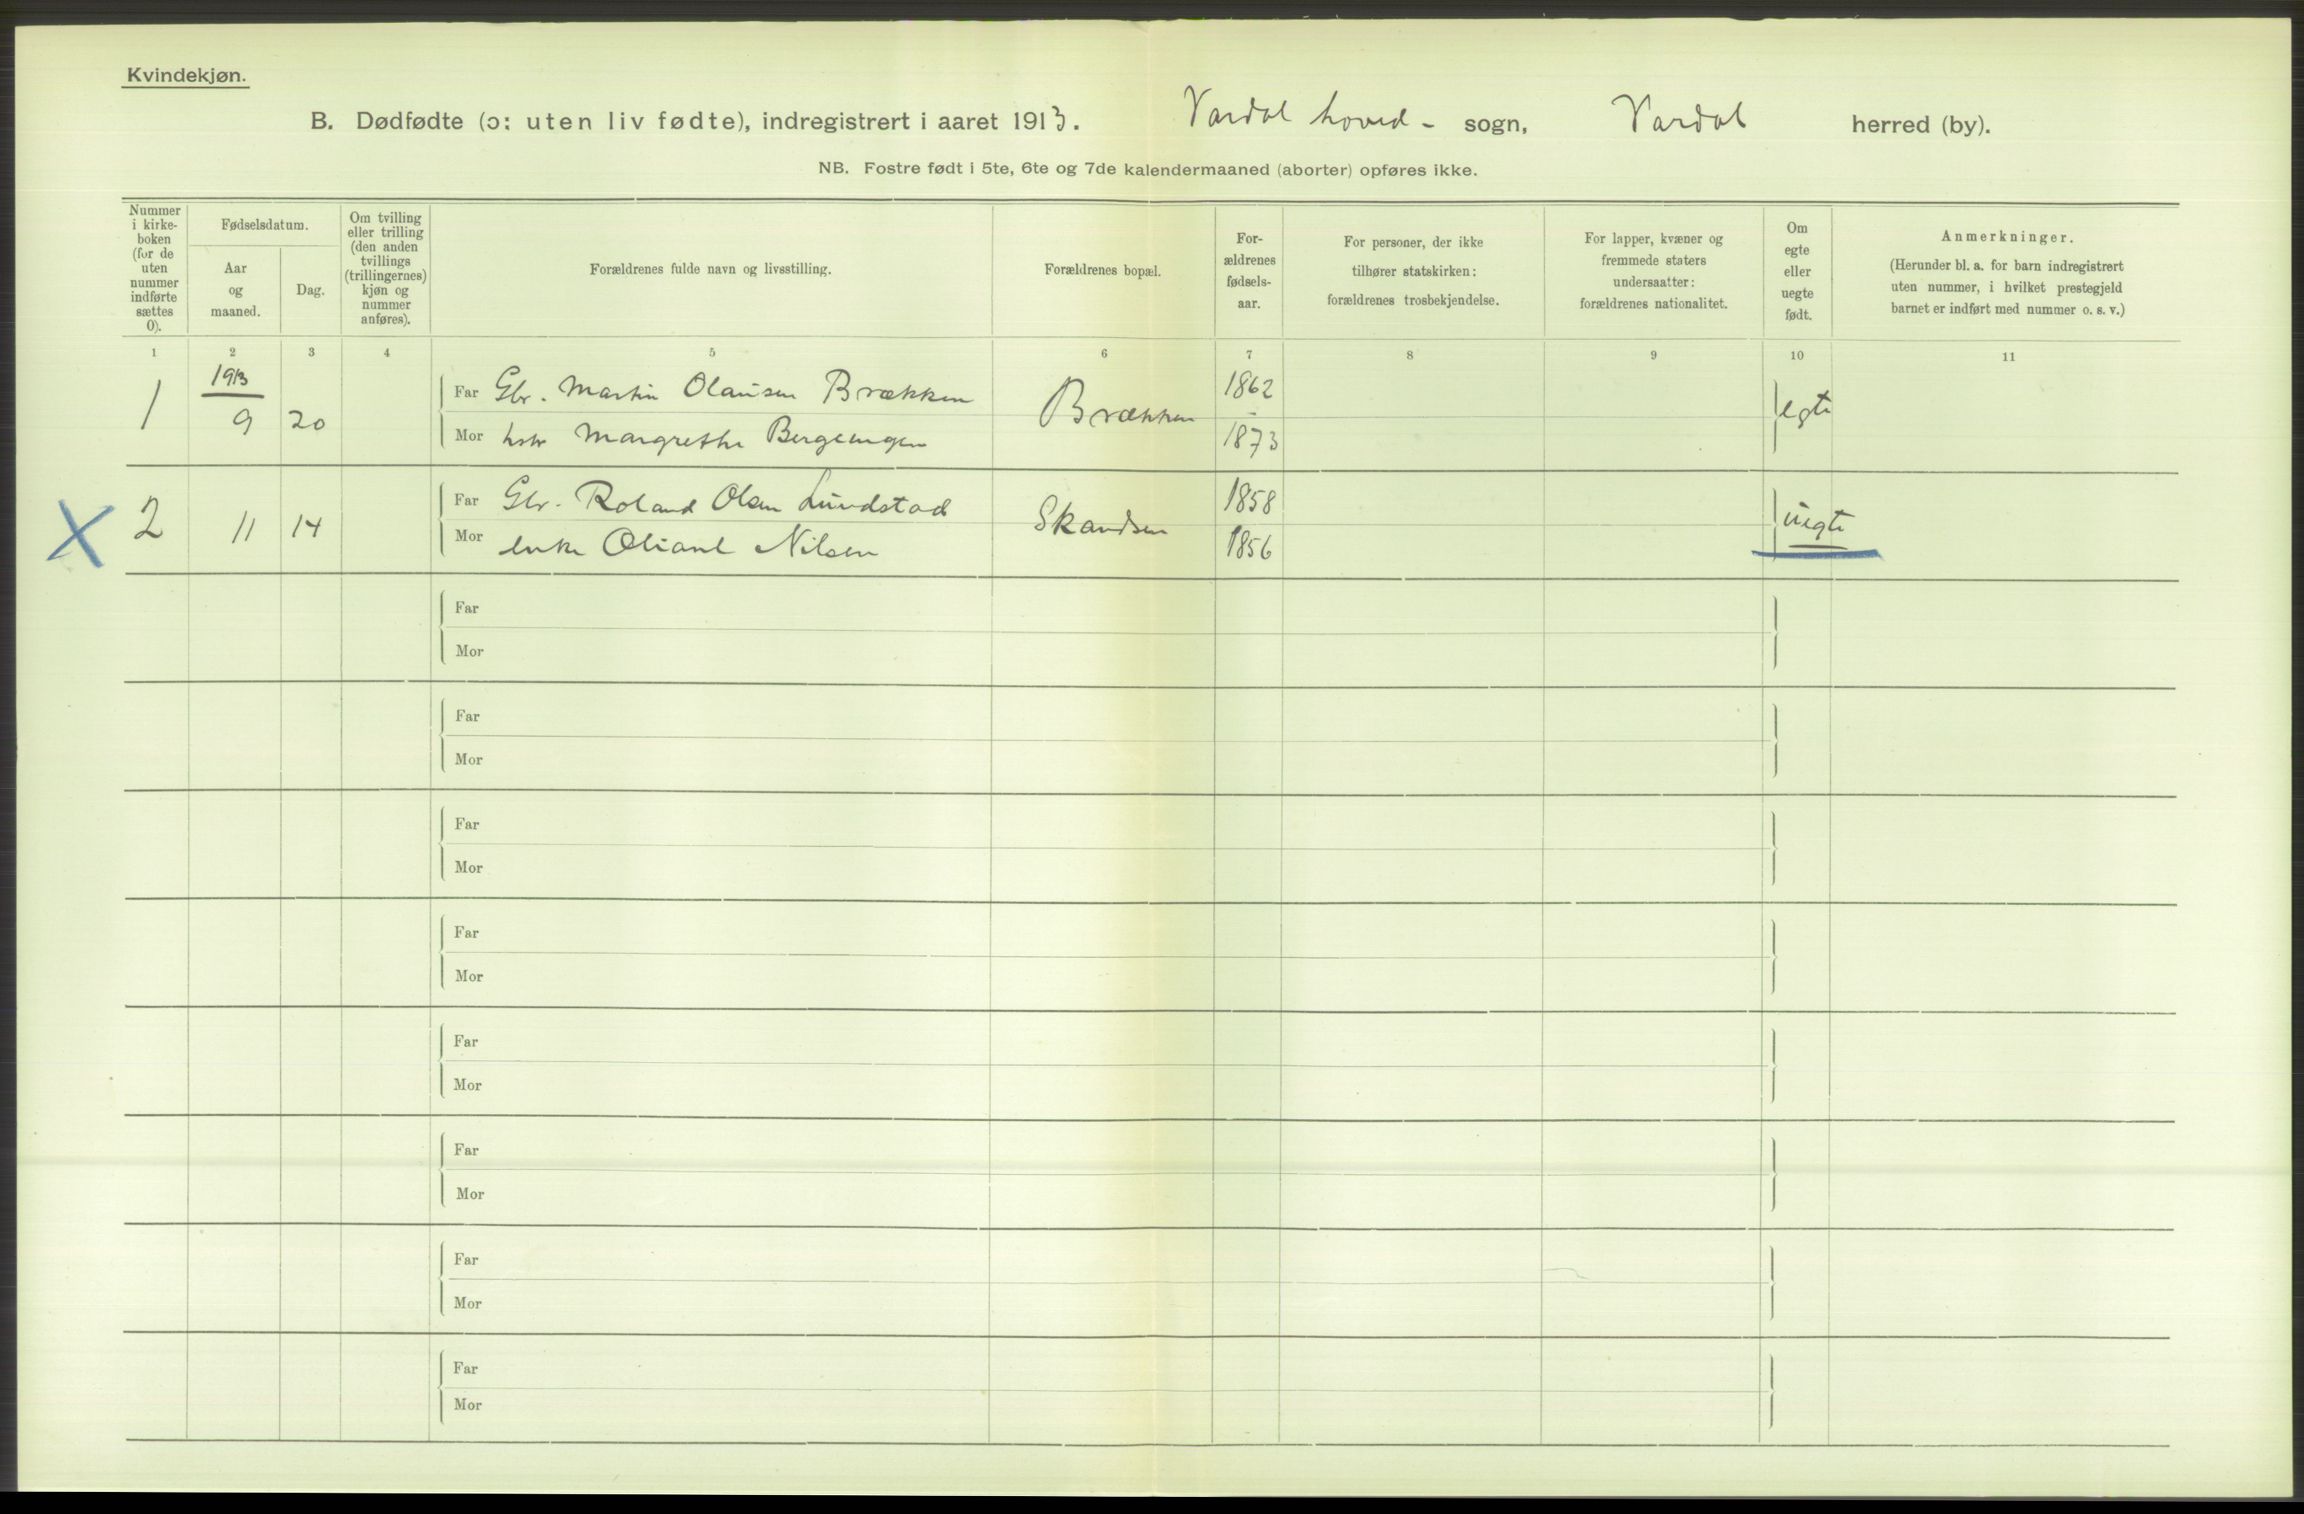 Kvindekjøn.
B. Dødfødte (ɔ: uten liv fødte), indregistrert i aaret 1913. Vardal hoved- sogn, Vardal herred (by).
NB. Fostre født i 5te, 6te og 7de kalendermaaned (aborter) opføres ikke.
Nummer
i kirke-
boken
(for de
uten
nummer
indførte
sættes
0).
Fødselsdatum.
Aar
og
maaned.
Dag.
Om tvilling
eller trilling
(den anden
tvillings
(trillingernes)
kjøn og
nummer
anføres).
Forældrenes fulde navn og livsstilling.
Forældrenes bopæl.
For-
ældrenes
fødsels-
aar.
For personer, der ikke
tilhører statskirken:
forældrenes trosbekjendelse.
For lapper, kvæner og
fremmede staters
undersaatter:
forældrenes nationalitet.
Om
egte
eller
uegte
født.
Anmerkninger.
(Herunder bl. a. for barn indregistrert
uten nummer, i hvilket prestegjeld
barnet er indført med nummer o. s. v.)
1 2 3 4 5 6 7 8 9 10 11
1913
1 9 20
Far Gbr. Martin Olausen Brækken
Mor hstr Margrethe
Brækken
1862
-
1873
egte
X 2 11 14
Far Gbr. Roland Olsen Lundstad
Mor enke Oliane Nilsen
Skandsen
1858
1856
uegte
Far
Mor
Far
Mor
Far
Mor
Far
Mor
Far
Mor
Far
Mor
Far
Mor
Far
Mor